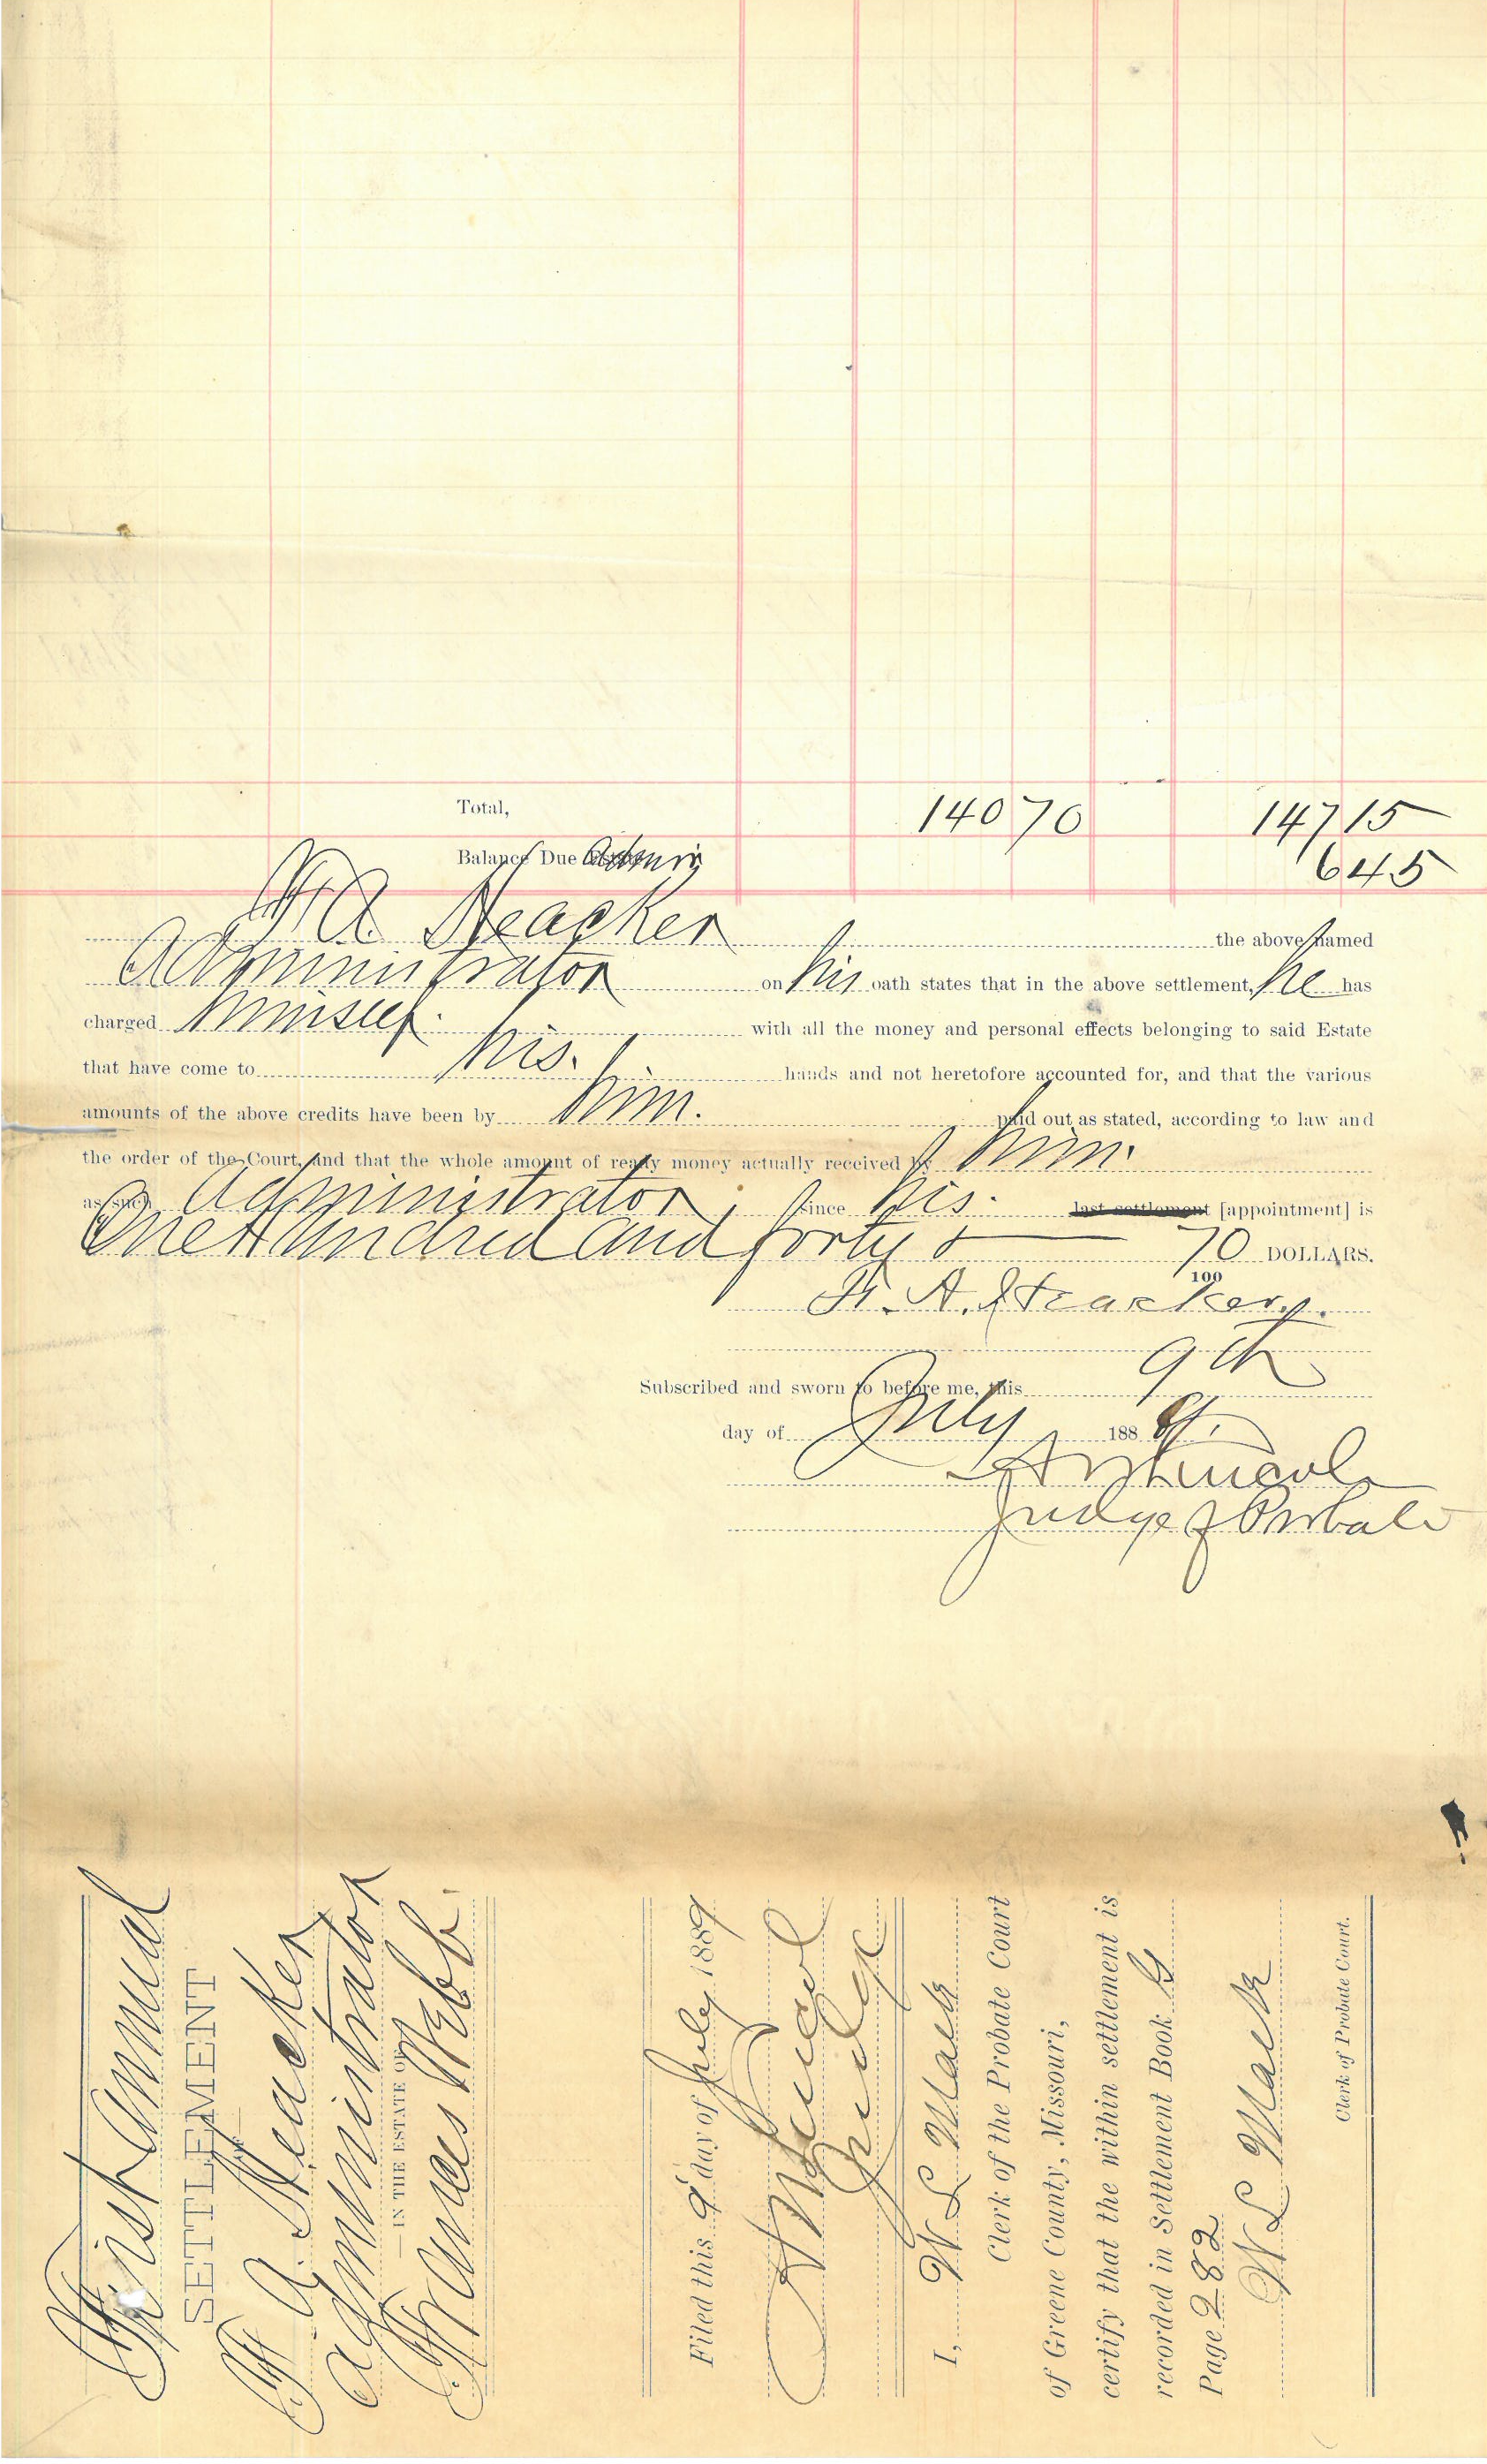 Total, 140 70 147 15
Balance Due Admin 6 45
F. A. Heacker the above named
Administrator on his oath states that in the above settlement, he has
charged himself. with all the money and personal effects belonging to said Estate
that have come to his. hands and not heretofore accounted for, and that the various
amounts of the above credits have been by him. paid out as stated, according to law and
the order of the Court, and that the whole amount of ready money actually received by him.
as such Administrator, since his. last settlement [appointment] is
One Hundred and forty & 70/100 DOLLARS.
F. A. Heacker.
Subscribed and sworn to before me, this 9th
day of July 1889.
Judge of Probate
First Annual
SETTLEMENT
F. A. Heacker
Administrator
IN THE ESTATE OF
Frances Webb.
Filed this 9 day of July 1889
Judge
I, W L Mack
Clerk of the Probate Court
of Greene County, Missouri,
certify that the within settlement is
recorded in Settlement Book G
Page 282
W L Mack
Clerk of Probate Court.